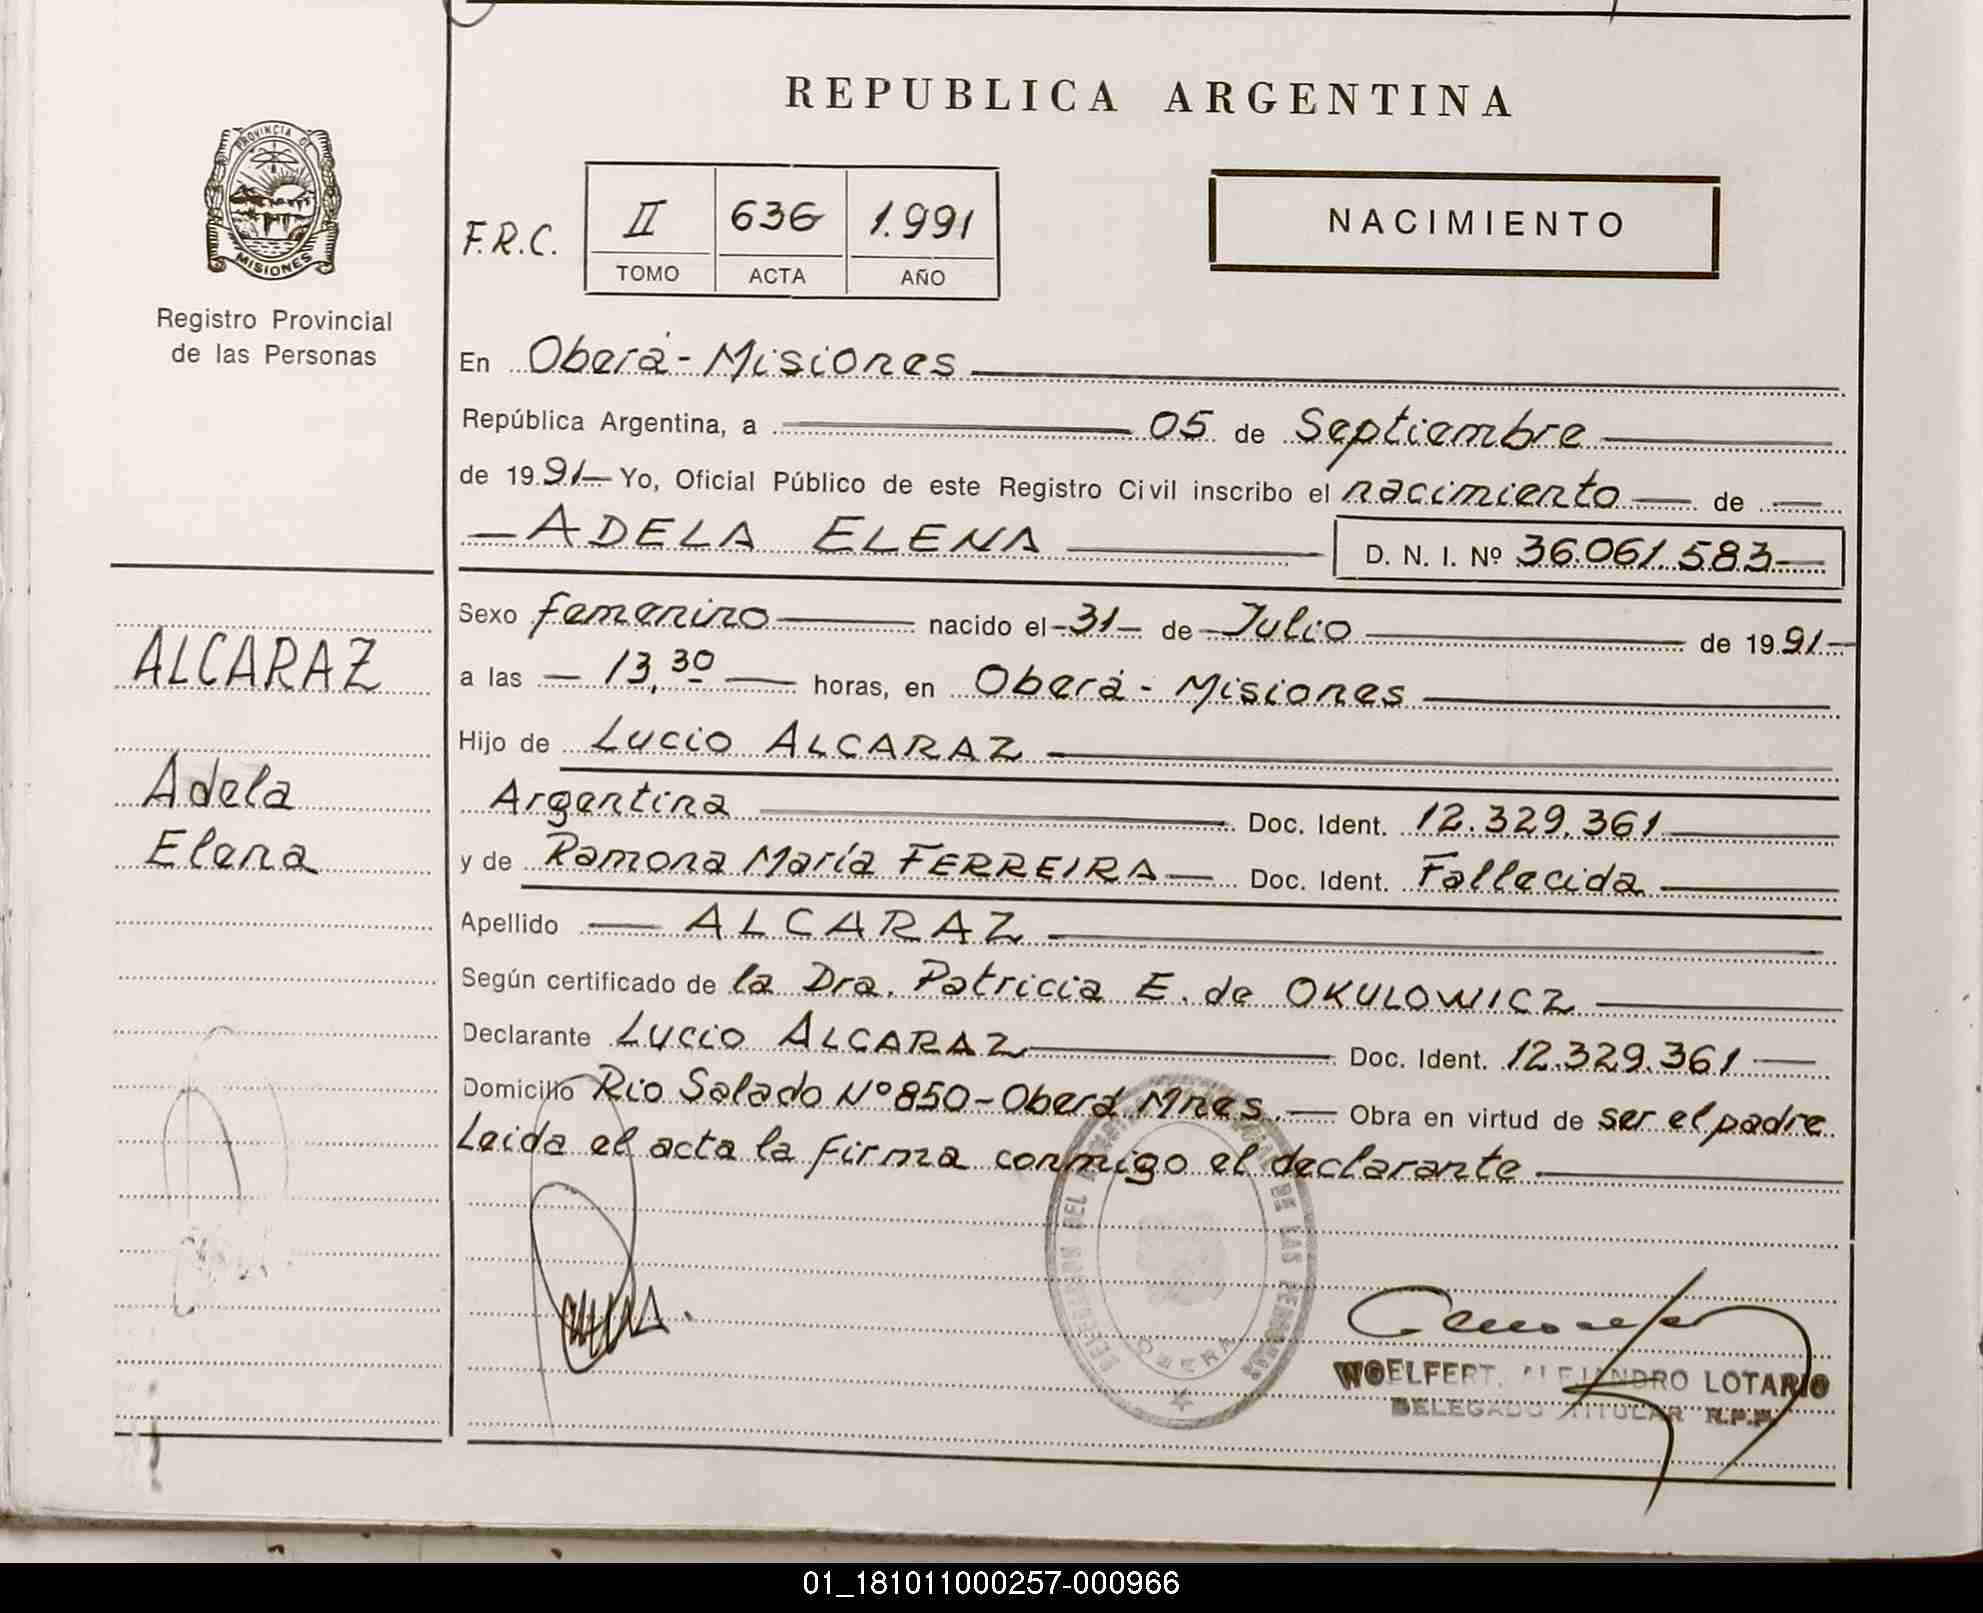 REPUBLICA ARGENTINA
PROVINCIA DE
MISIONES
Registro Provincial
de las Personas
F.R.C. II 636 1.991
TOMO ACTA AÑO
NACIMIENTO
En Oberá - Misiones
República Argentina, a 05 de Septiembre
de 1991 Yo, Oficial Público de este Registro Civil inscribo el nacimiento de
ADELA ELENA D. N. I. Nº 36.061.583
Sexo femenino nacido el 31 de Julio de 1991
ALCARAZ
a las 13,30 horas, en Oberá - Misiones
Hijo de Lucio ALCARAZ
Adela
Argentina Doc. Ident. 12.329.361
Elena
y de Ramona María FERREIRA Doc. Ident. Fallecida
Apellido ALCARAZ
Según certificado de la Dra. Patricia E. de OKULOWICZ
Declarante Lucio ALCARAZ Doc. Ident. 12.329.361
Domicilio Rio Salado Nº 850 - Oberá Mnes. Obra en virtud de ser el padre
Leida el acta la firma conmigo el declarante
DELEGACION DEL DE LAS PERSONAS
OBERA
WOELFERT, ALEJANDRO LOTARIO
DELEGADO TITULAR R.P.P.
01_181011000257-000966